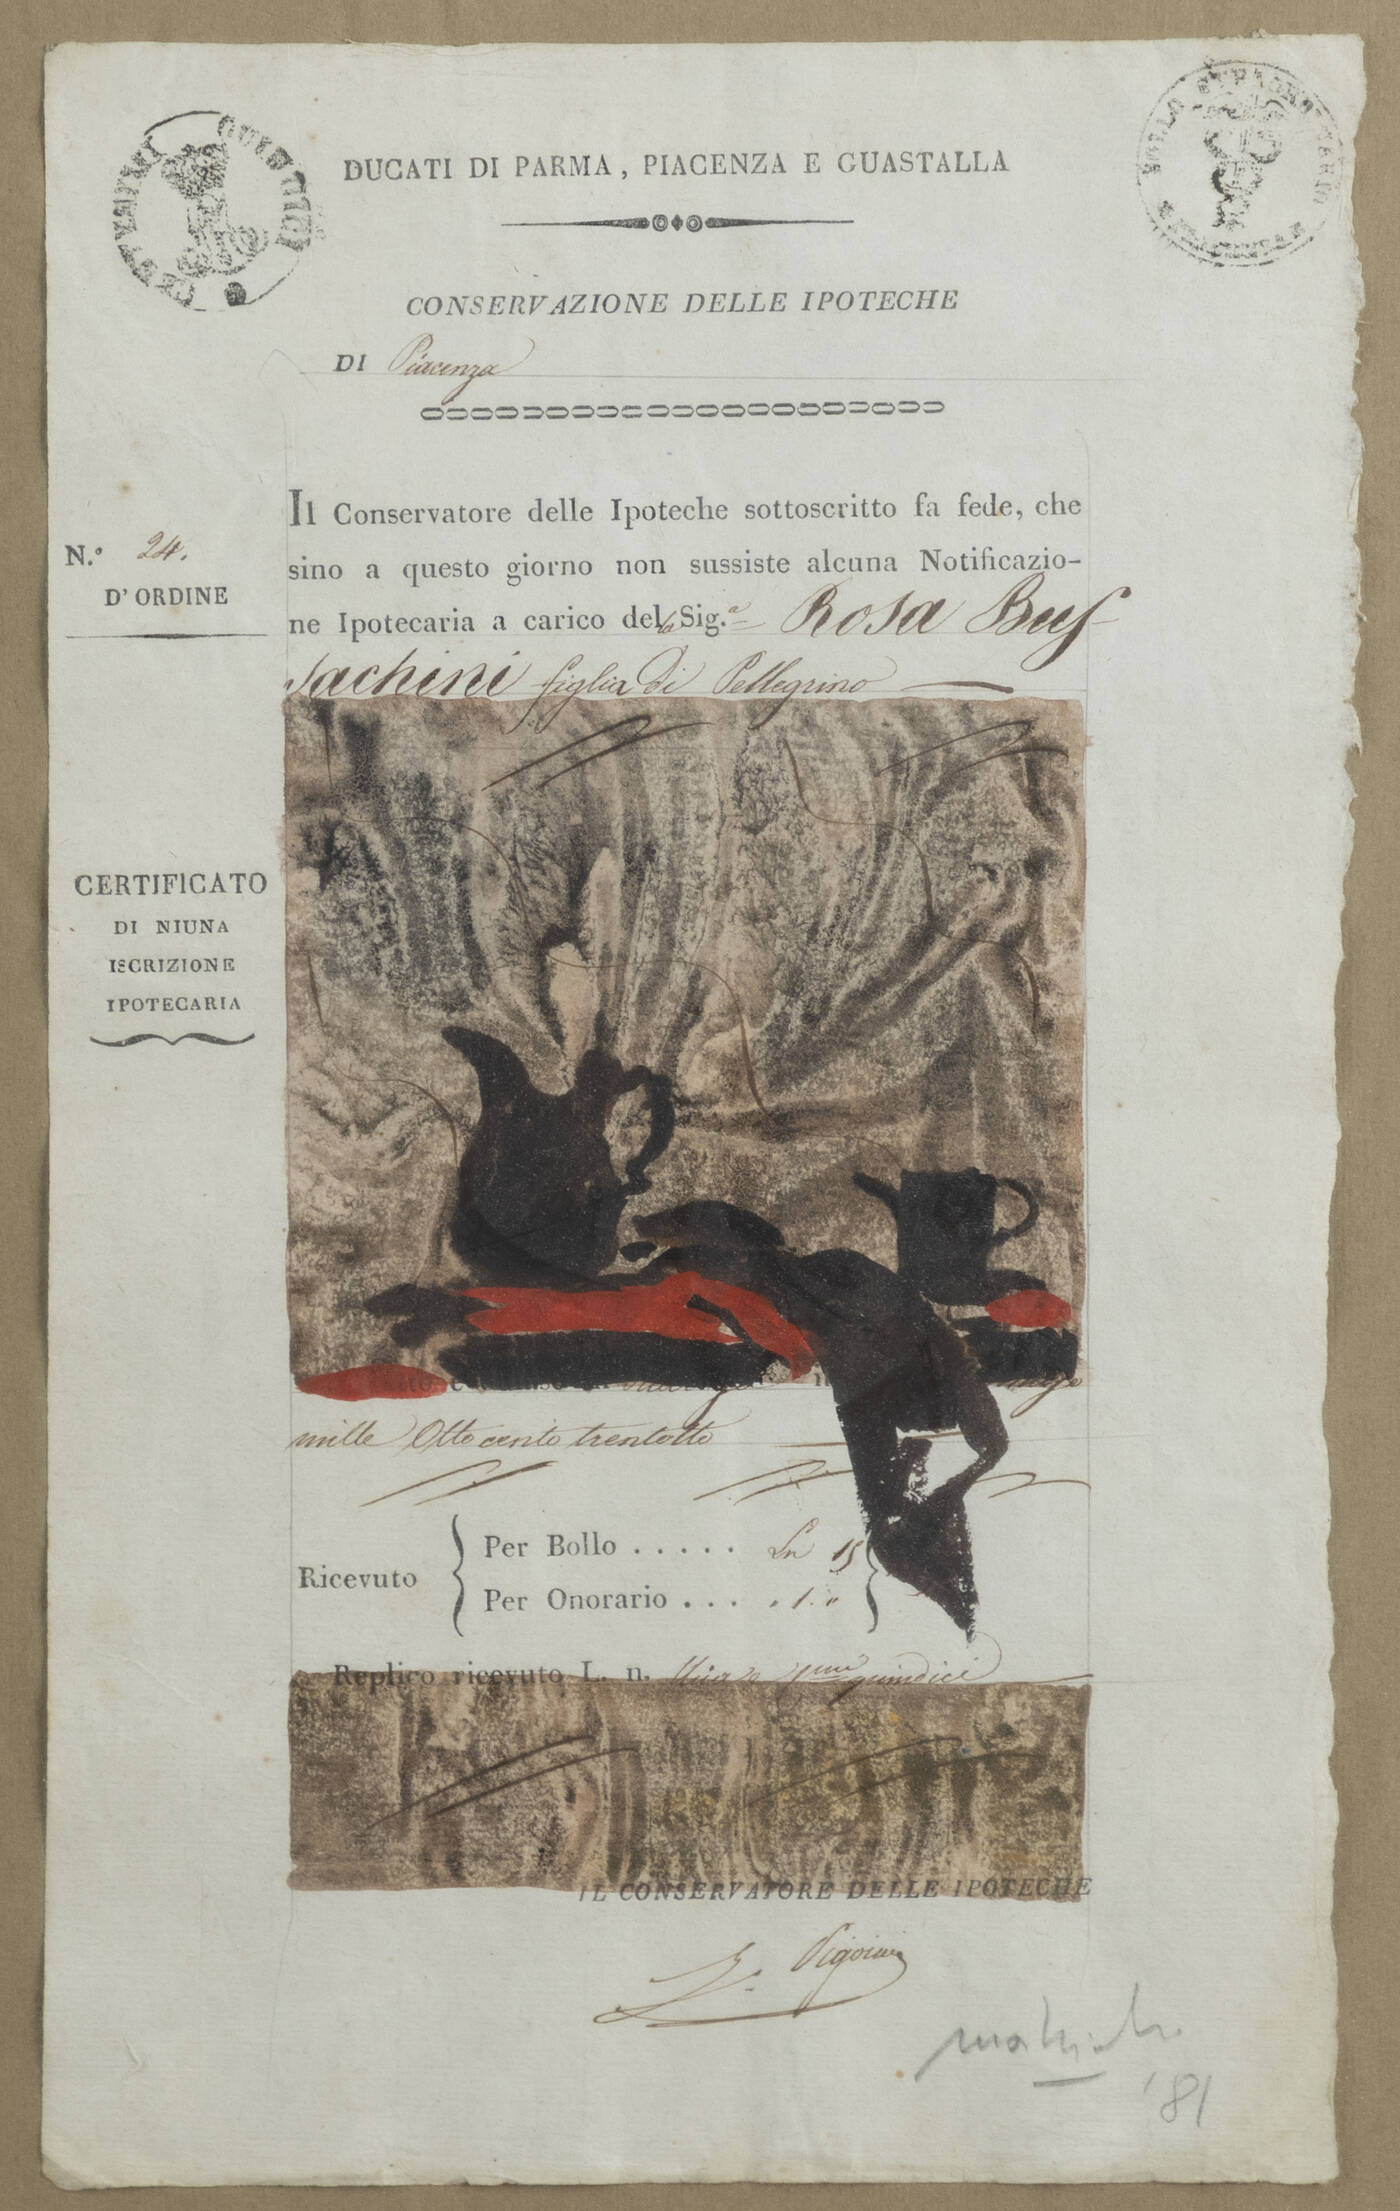 DUCATI DI PARMA, PIACENZA E GUASTALLA
CONSERVAZIONE DELLE IPOTECHE
DI Piacenza
N.° 24.
D'ORDINE
Il Conservatore delle Ipoteche sottoscritto fa fede, che
sino a questo giorno non sussiste alcuna Notificazio-
ne Ipotecaria a carico della Sig.ª Rosa Bus-
sachini figlia di Pellegrino
CERTIFICATO
DI NIUNA
ISCRIZIONE
IPOTECARIA
mille Ottocento trentotto
Ricevuto
Per Bollo ..... Ln 15
Per Onorario ... " 1. "
Replico ricevuto L. n. quindici
IL CONSERVATORE DELLE IPOTECHE
'81